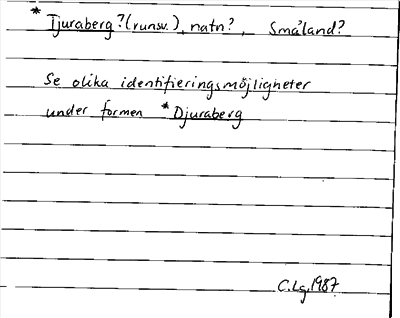 * Tjuraberg? (runsv.), natn?, Småland?
Se olika identifieringsmöjligheter
under formen *Djuraberg
C.Lg. 1987